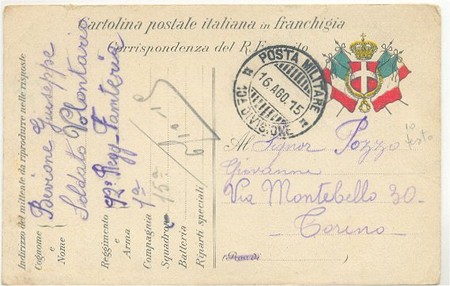 Cartolina postale italiana in franchigia
Corrispondenza del R. Esercito
POSTA MILITARE
16 AGO. 15
10ª DIVISIONE
Al Signor Pozzo
Giovanni
Via Montebello 30-
Torino
Indirizzo del mittente da riprodurre nelle risposte
Cognome e Nome
Bevione Giuseppe
Soldato Volontario
Reggimento e Arma
92º Regg. Fanteria
Compagnia
1ª
Squadrone
15ª
Batteria
Riparti speciali